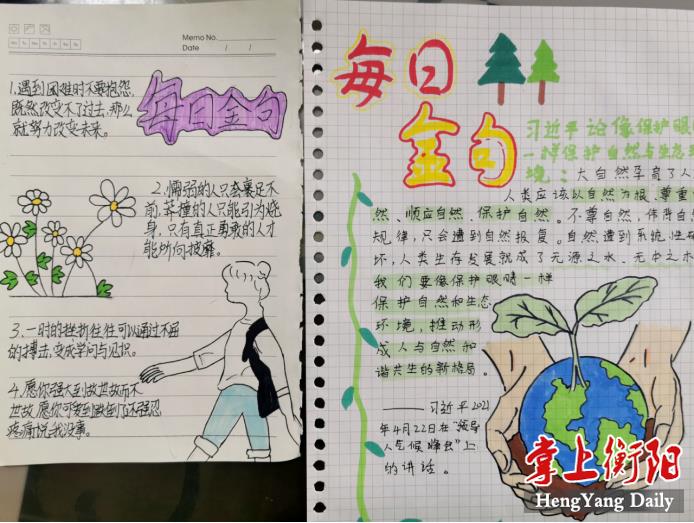 Memo No.
Date / /
每日金句
1.遇到困难时不要抱怨,
既然改变不了过去,那么
就努力改变未来。
2.懦弱的人只会裹足不
前,莽撞的人只能引为烧
身,只有真正勇敢的人才
能所向披靡。
3.一时的挫折往往可以通过不屈
的搏击,变成学问与见识。
4.愿你强大到
世故,愿你可
疼痛说:我没事。
每日
金句
习近平论像保护眼
一样保护自然与生态
境:大自然孕育了人
人类应该以自然为根、尊重
然、顺应自然、保护自然。不尊自然,伟背自
规律,只会遭到自然报复。自然遭到系统性破
坏,人类生存发展就成了无源之水、无本之木
我们要像保护眼睛一样
保护自然和生态
环境,推动形
成人与自然和
谐共生的新格局。
——习近平2021
年4月22日在"领导
人气候峰会"上
的讲话。
掌上衡阳
HengYang Daily